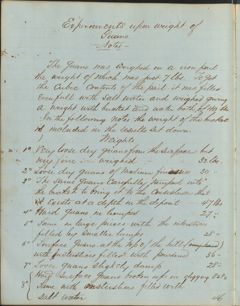 Experiments upon weight of
Guano
Notes
The Guano was weighed in a iron pail
the weight of which was just 7 lbs. To get
the Cubic Contents of the pail it was filled
evenfull with salt water and weighed giving
a weight with bucket and water both of
In the following note the weight of the bucket
is included in the results set down.
Weights
1st Very loose dry guano from the surface but
very fine weighed 32 lbs
2d Loose dry guano of medium fineness 30
3d The same Guano Carefully jumped into
the bucket to bring it to the Condition that
it exists at a depth in the deposit 47 lbs
4th Hard Guano in lumps 27
5th Same in large pieces with the interstices
filled by smaller lumps 35
6th Surface Guano at the top of the hill
with interstices filled with powdered 36
7th Loose guano slightly damp 25
Hard Surface Guano
8th Same with interstices filled with
salt water 46